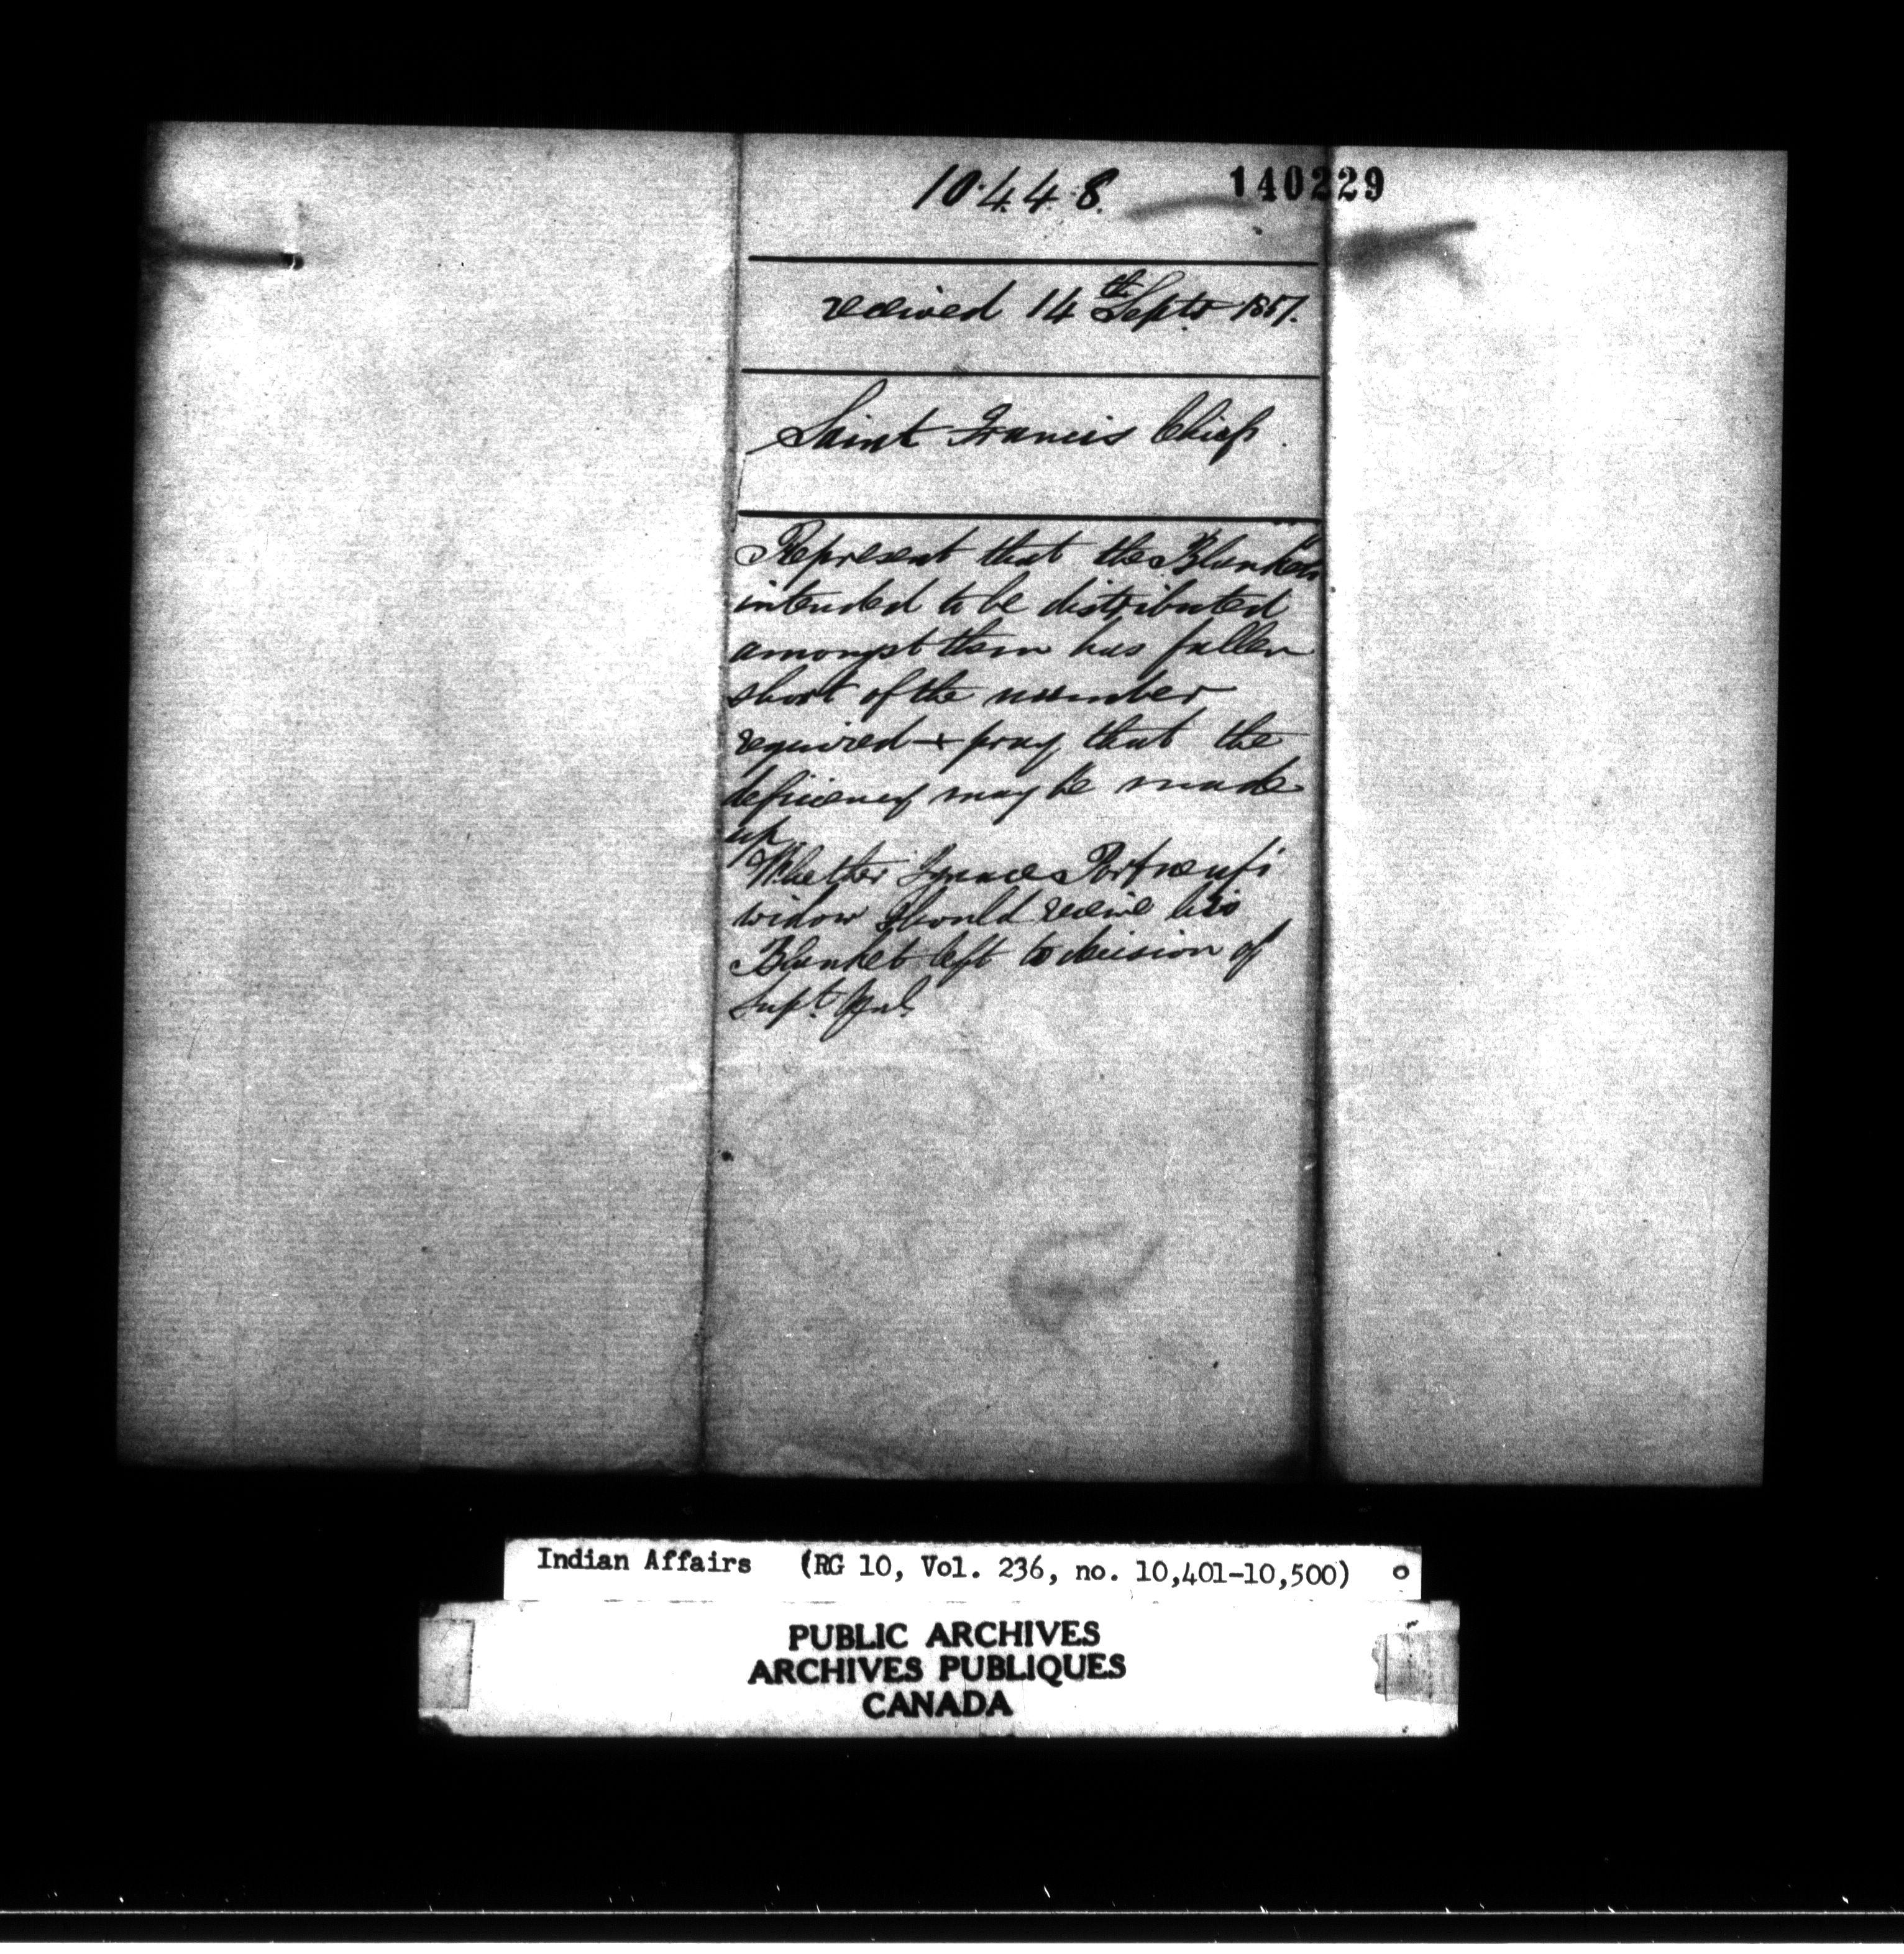 10.448.
140229
received 14th Septr 1857.
Saint Francis Chiefs.
Represent that the Blankets
intended to be distributed
amongst them has fallen
short of the number
required & pray that the
deficiency may be made
up
Whether Ignace Portneufs
widow should receive his
Blanket left to decision of
Supt. Genl.
Indian Affairs (RG 10, Vol. 236, no. 10,401-10,500)
PUBLIC ARCHIVES
ARCHIVES PUBLIQUES
CANADA